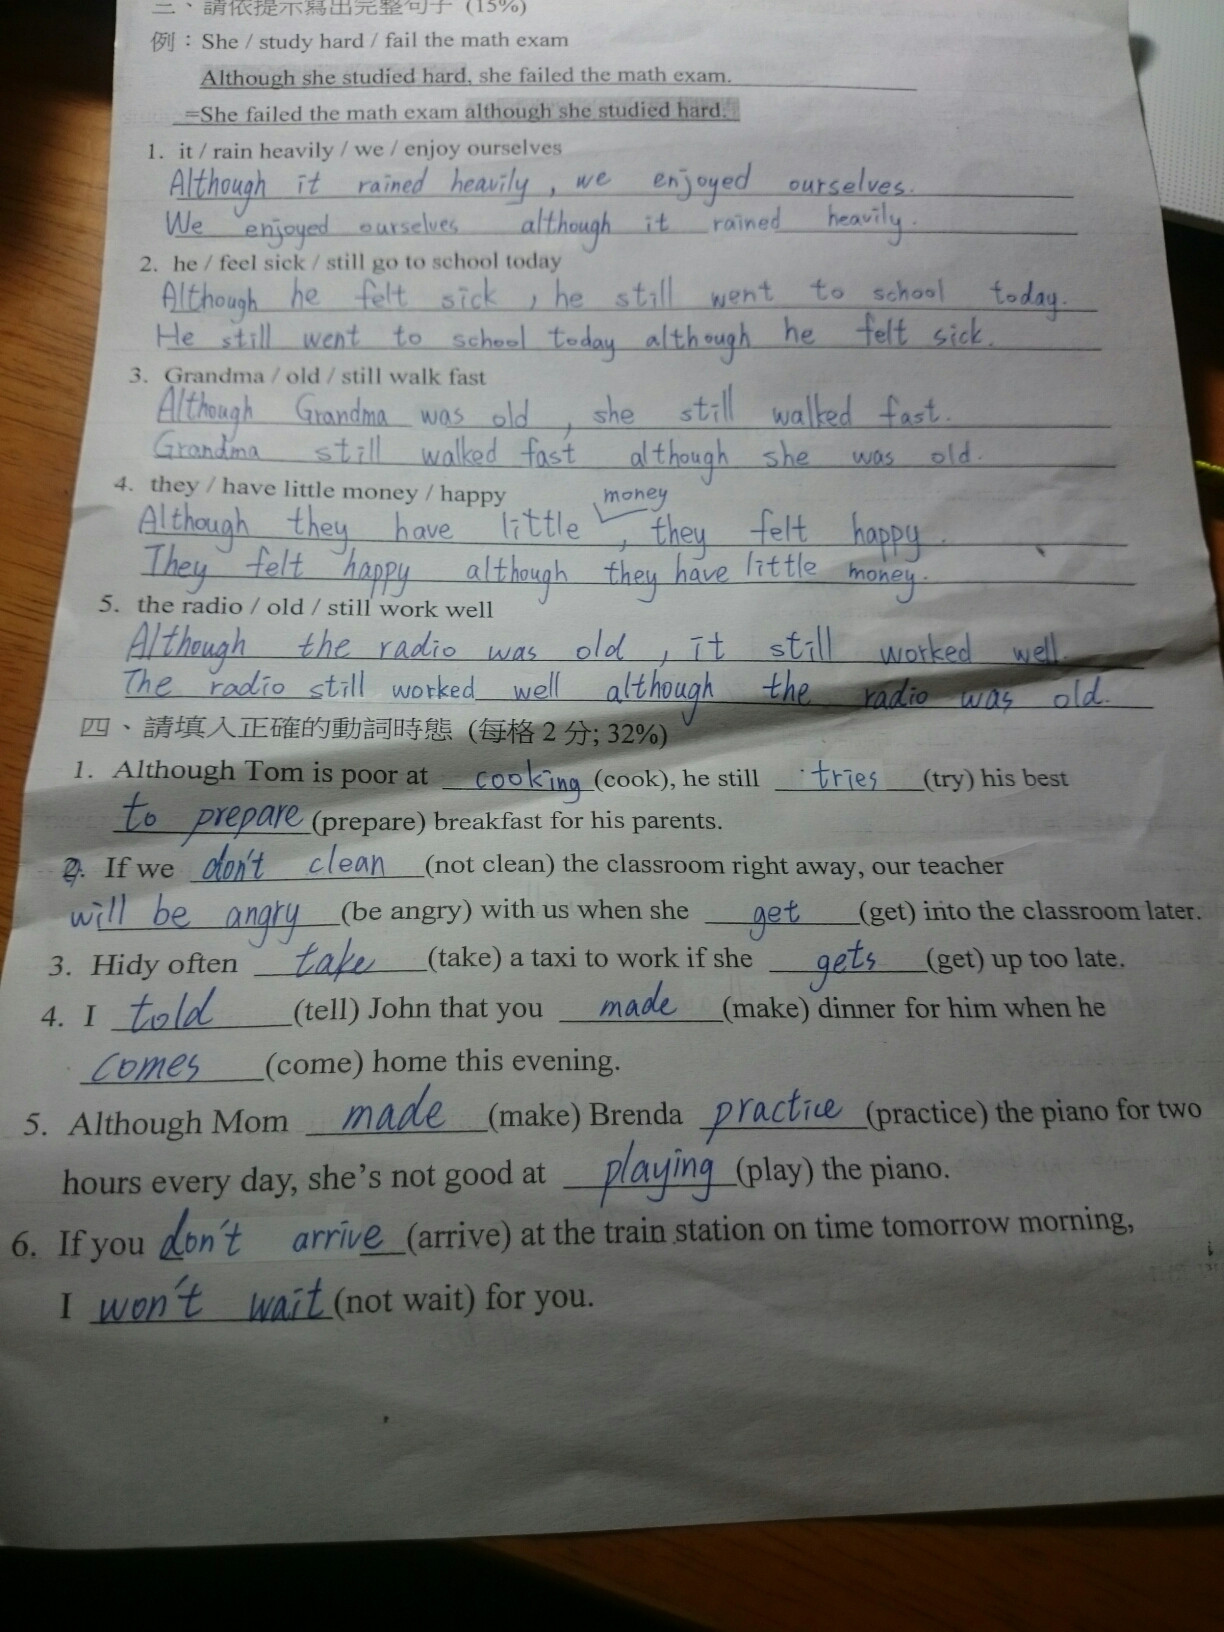 三、請依提示寫出完整句子 (15%)
例：She / study hard / fail the math exam
Although she studied hard, she failed the math exam.
=She failed the math exam although she studied hard.
1. it / rain heavily / we / enjoy ourselves
Although it rained heavily , we enjoyed ourselves.
We enjoyed ourselves although it rained heavily.
2. he / feel sick / still go to school today
Although he felt sick , he still went to school today.
He still went to school today although he felt sick.
3. Grandma / old / still walk fast
Although Grandma was old , she still walked fast.
Grandma still walked fast although she was old.
4. they / have little money / happy
money
Although they have little , they felt happy.
They felt happy although they have little money.
5. the radio / old / still work well
Although the radio was old , it still worked well.
The radio still worked well although the radio was old.
四、請填入正確的動詞時態 (每格 2 分; 32%)
1. Although Tom is poor at cooking (cook), he still tries (try) his best
to prepare (prepare) breakfast for his parents.
2. If we don't clean (not clean) the classroom right away, our teacher
will be angry (be angry) with us when she get (get) into the classroom later.
3. Hidy often take (take) a taxi to work if she gets (get) up too late.
4. I told (tell) John that you made (make) dinner for him when he
comes (come) home this evening.
5. Although Mom made (make) Brenda practice (practice) the piano for two
hours every day, she's not good at playing (play) the piano.
6. If you don't arrive (arrive) at the train station on time tomorrow morning,
I won't wait (not wait) for you.